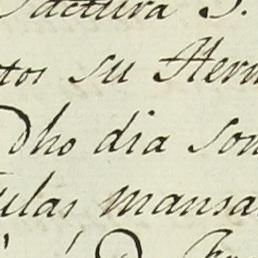 factura 3.
tos su Herm
Dho dia son
ulas mansa